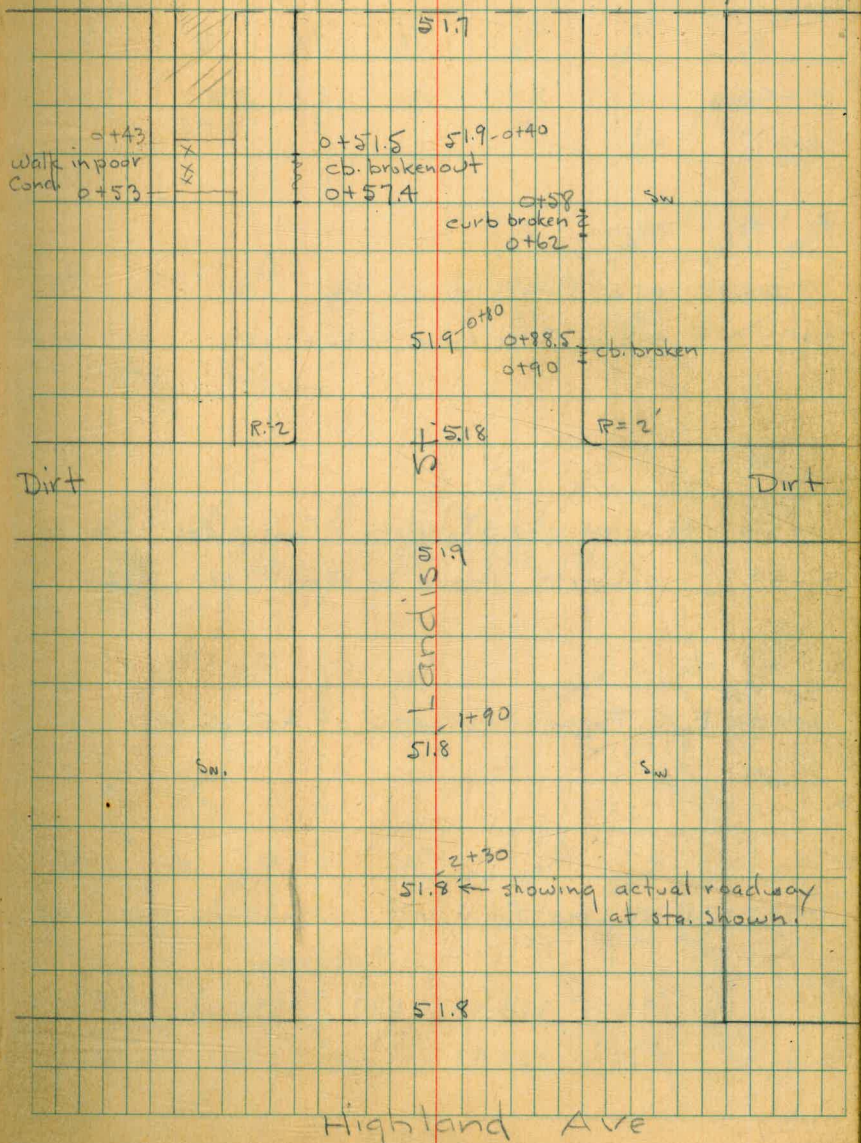 51.7
0+43
walk in poor
Cond.
0+53
xxx
0+51.5
cb. broken out
0+57.4
51.9-0+40
0+58
curb broken
0+62
Sw
51.9-0+80
0+88.5
cb. broken
0+90
R=2
5.18
R=2'
Dirt
Landis St.
Dirt
51.9
1+90
51.8
Sw.
Sw
2+30
51.8 ← showing actual roadway
at sta. shown.
51.8
Highland Ave